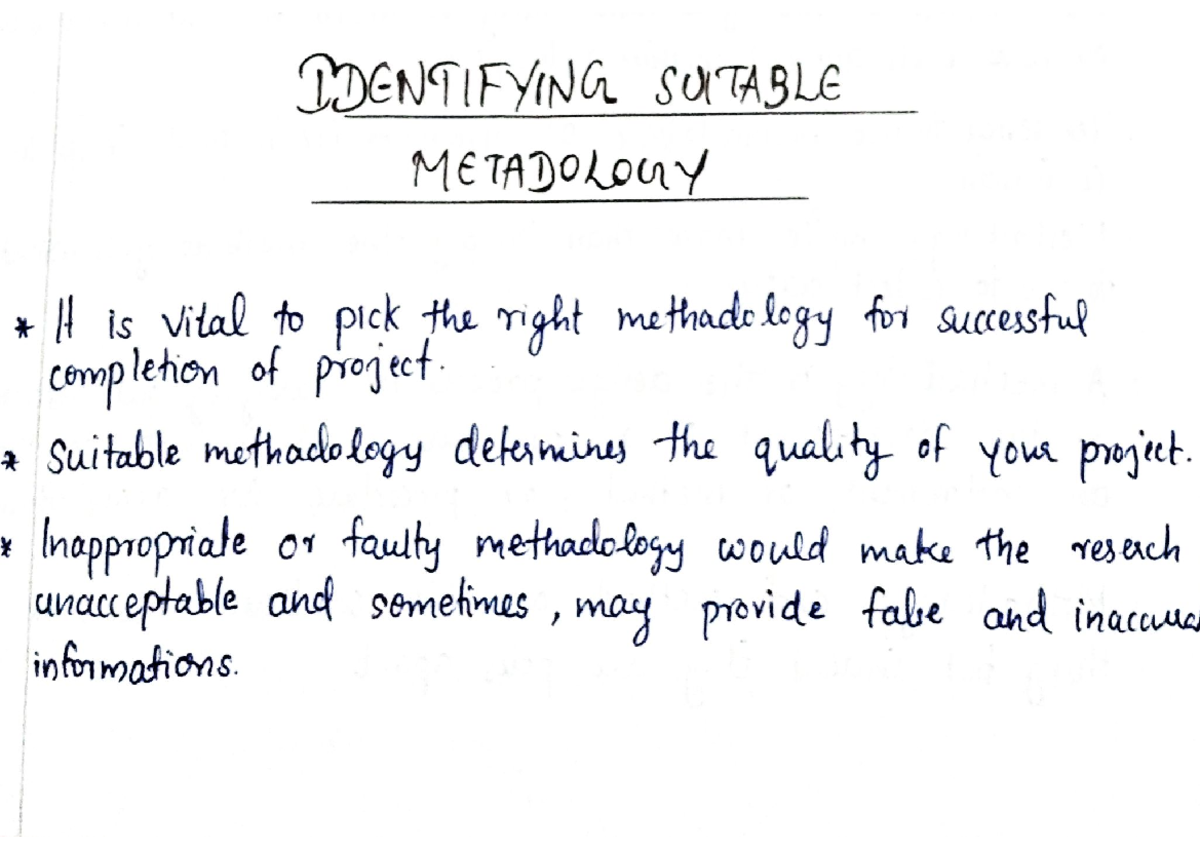 IDENTIFYING SUITABLE
METADOLOGY
* It is vital to pick the right methadology for successful
completion of project.
* Suitable methadology determines the quality of your project.
* Inappropriate or faulty methadology would make the reserch
unacceptable and sometimes, may provide false and
informations.